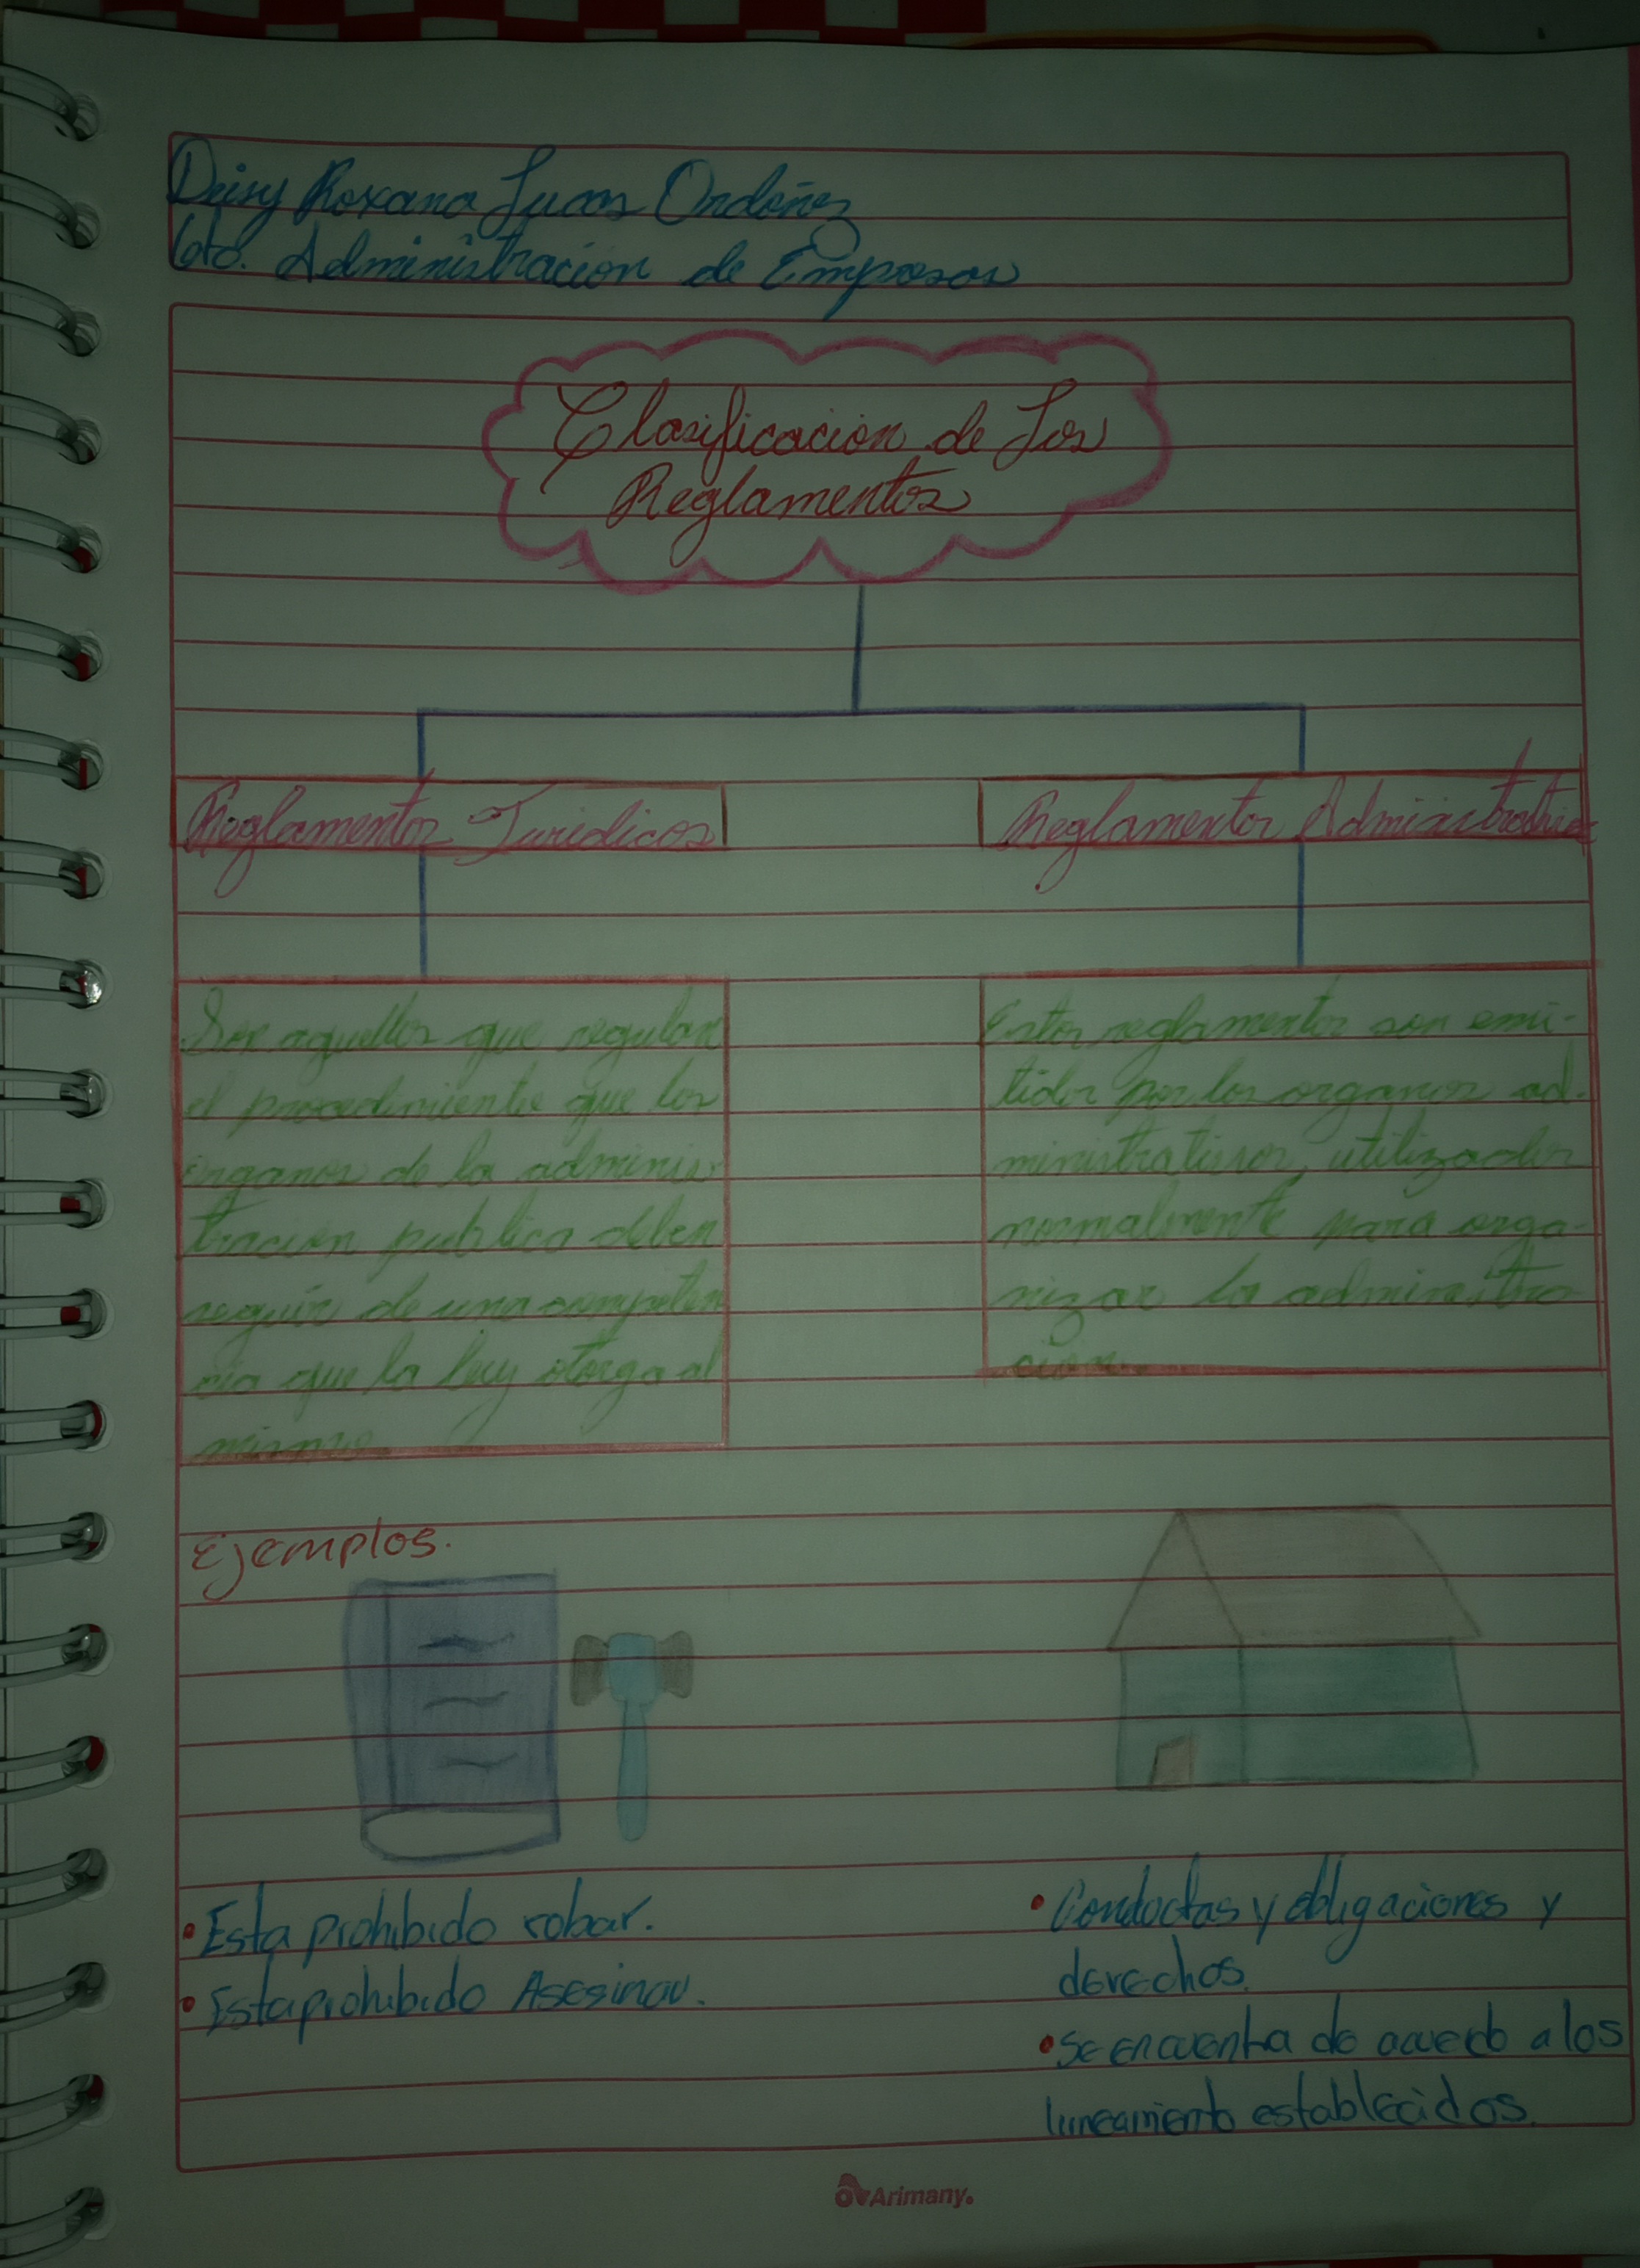 Deisy Roxana Lucas Ordóñez
6to. Administración de Empresas
Clasificación de Los
Reglamentos
Reglamentos Juridicos
Reglamentos Administrativos
Son aquellos que regulan
el procedimiento que los
organos de la adminis-
tración publica deben
seguir de una competen
cia que la ley otorga al
mismo
Estos reglamentos son emi-
tidos por los organos ad-
ministrativos, utilizados
normalmente para orga-
nizar la administra-
ción.
Ejemplos.
• Esta prohibido robar.
• Esta prohibido Asesinar.
• Conductas y obligaciones y
derechos.
• Se encuentra de acuerdo a los
lineamiento establecidos.
Arimany.